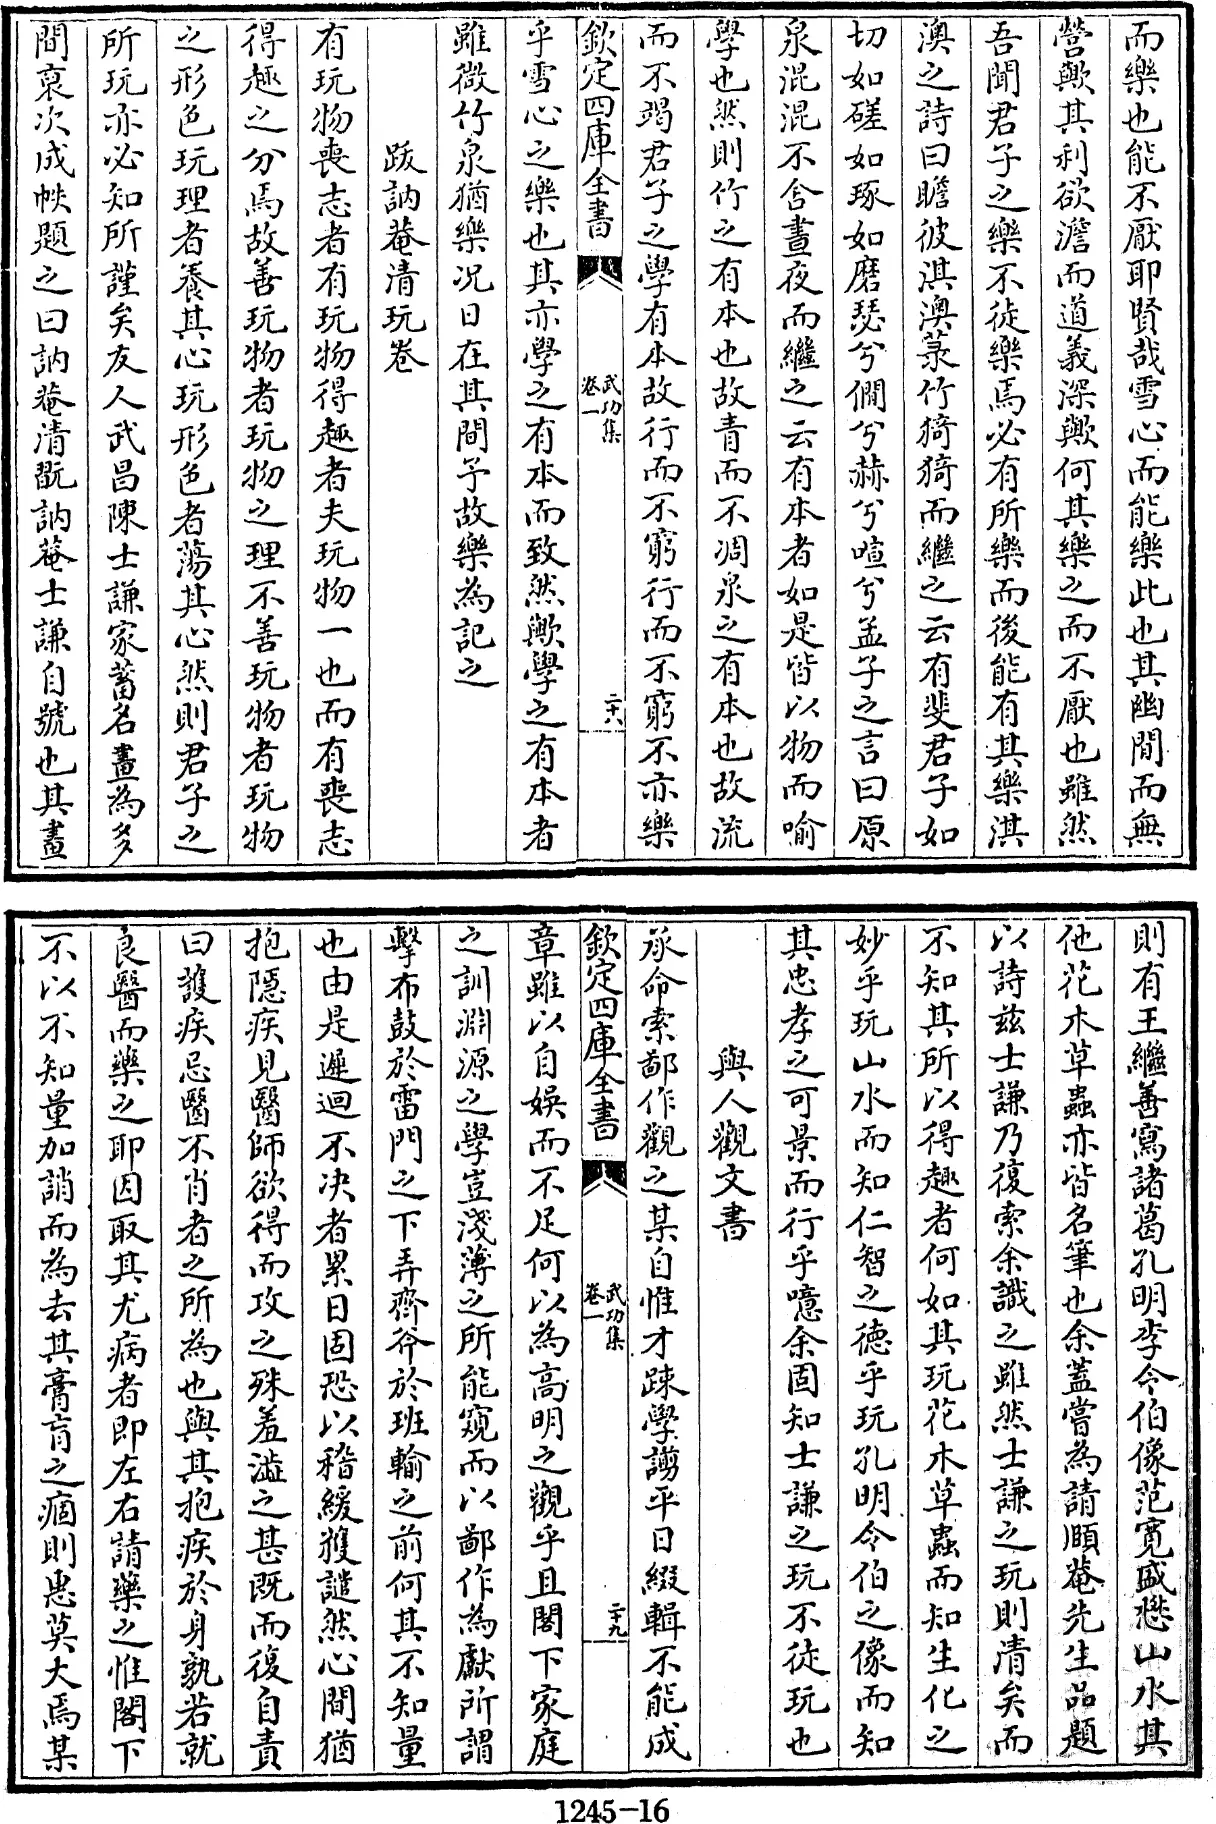 而樂也能不厭耶賢哉雪心而能樂此也其幽閒而無
營歟其利欲澹而道義深歟何其樂之而不厭也雖然
吾聞君子之樂不徒樂焉必有所樂而後能有其樂淇
澳之詩曰瞻彼淇澳菉竹猗猗而繼之云有斐君子如
切如磋如琢如磨瑟兮僩兮赫兮喧兮孟子之言曰原
泉混混不舍晝夜而繼之云有本者如是皆以物而喻
學也然則竹之有本也故青而不凋泉之有本也故流
而不竭君子之學有本故行而不窮行而不窮不亦樂
欽定四庫全書
武功集
卷一
二十八
乎雪心之樂也其亦學之有本而致然歟學之有本者
雖微竹泉猶樂况日在其間乎故樂為記之
跋訥菴清玩卷
有玩物喪志者有玩物得趣者夫玩物一也而有喪志
得趣之分焉故善玩物者玩物之理不善玩物者玩物
之形色玩理者養其心玩形色者蕩其心然則君子之
所玩亦必知所謹矣友人武昌陳士謙家蓄名畫為多
間裒次成帙題之曰訥菴清翫訥菴士謙自號也其畫
則有王繼善寫諸葛孔明李令伯像范寛盛懋山水其
他花木草蟲亦皆名筆也余蓋嘗為請頤菴先生品題
以詩茲士謙乃復索余識之雖然士謙之玩則清矣而
不知其所以得趣者何如其玩花木草蟲而知生化之
妙乎玩山水而知仁智之德乎玩孔明令伯之像而知
其忠孝之可景而行乎噫余固知士謙之玩不徒玩也
與人觀文書
承命索鄙作觀之某自惟才疎學謭平日綴輯不能成
欽定四庫全書
武功集
卷一
二十九
章雖以自娛而不足何以為高明之觀乎且閣下家庭
之訓淵源之學豈淺薄之所能窺而以鄙作為獻所謂
擊布鼓於雷門之下弄齊斧於班輸之前何其不知量
也由是遲迴不决者累日固恐以稽緩獲譴然心間猶
抱隱疾見醫師欲得而攻之殊羞澁之甚既而復自責
曰護疾忌醫不肖者之所為也與其抱疾於身孰若就
良醫而藥之耶因取其尤病者即左右請藥之惟閣下
不以不知量加誚而為去其膏肓之痼則惠莫大焉某
1245-16